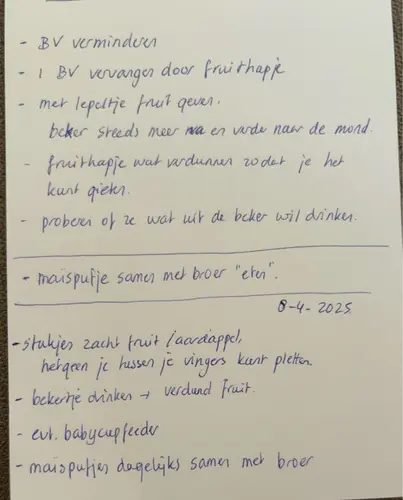 - BV verminderen
- 1 BV vervangen door fruithapje
- met lepeltje fruit geven.
beker steeds meer en verder naar de mond.
- fruithapje wat verdunnen zodat je het
kunt gieten.
- proberen of ze wat uit de beker wil drinken.
- maispufje samen met broer "eten".
8-4-2025
- stukjes zacht fruit / aardappel,
hetgeen je tussen je vingers kunt pletten.
- bekertje drinken → verdund fruit.
- evt. babycupfeeder
- maispufjes dagelijks samen met broer